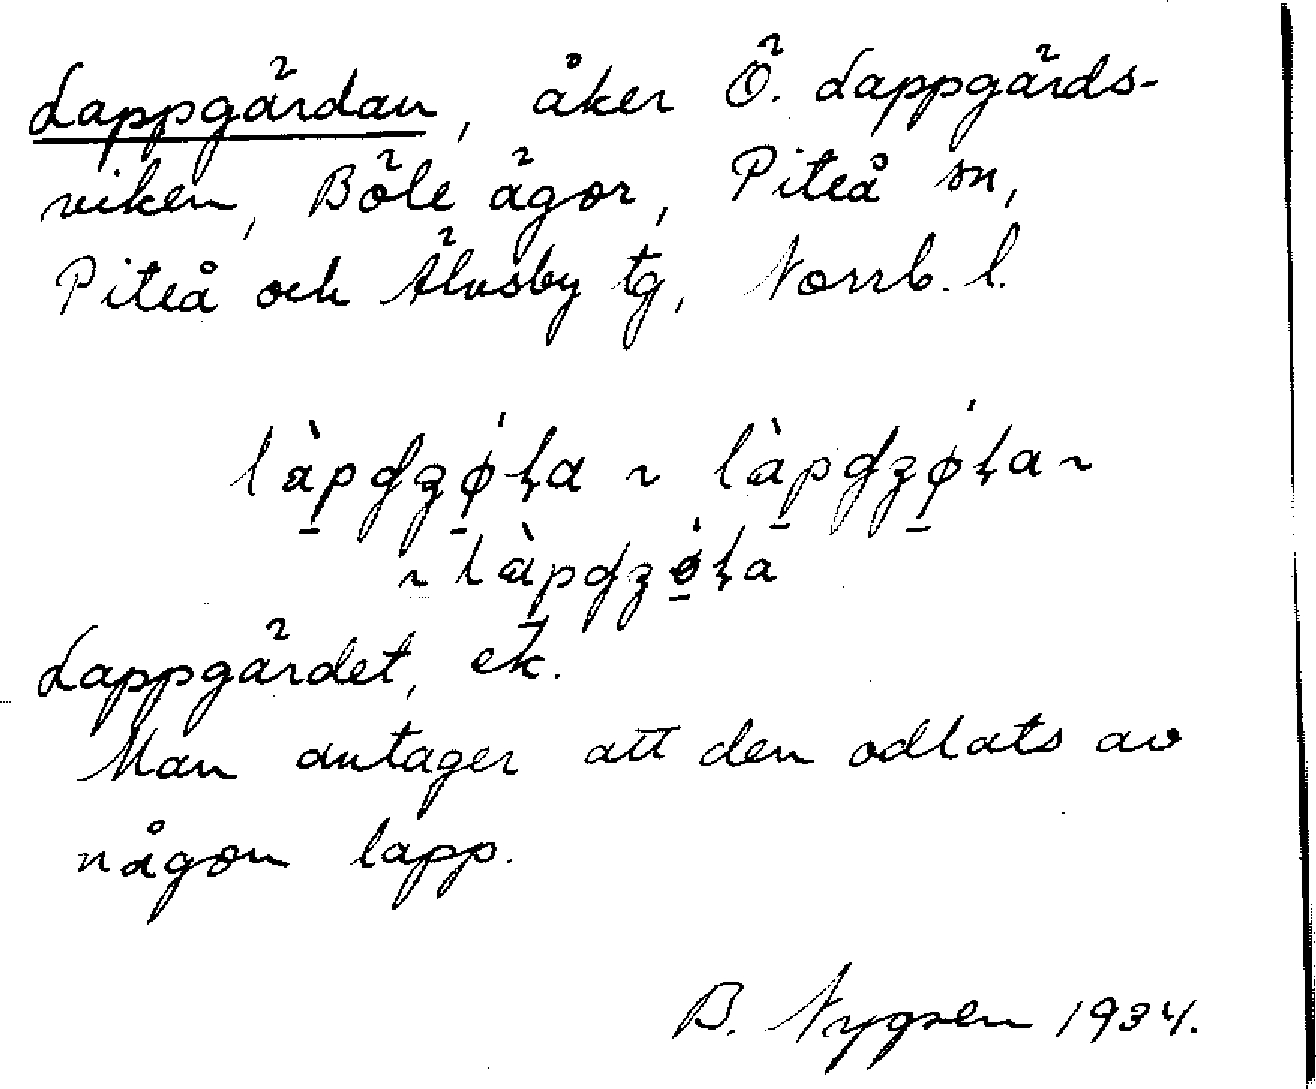 Lappgärdan, åker Ö. Lappgärds-
viken, Böle ägor, Piteå sn,
Piteå och Älvsby tg, Norrb. l.
Lappgärdet, ek.
Man antager att den odlats av
någon lapp.
B. Nygren 1934.